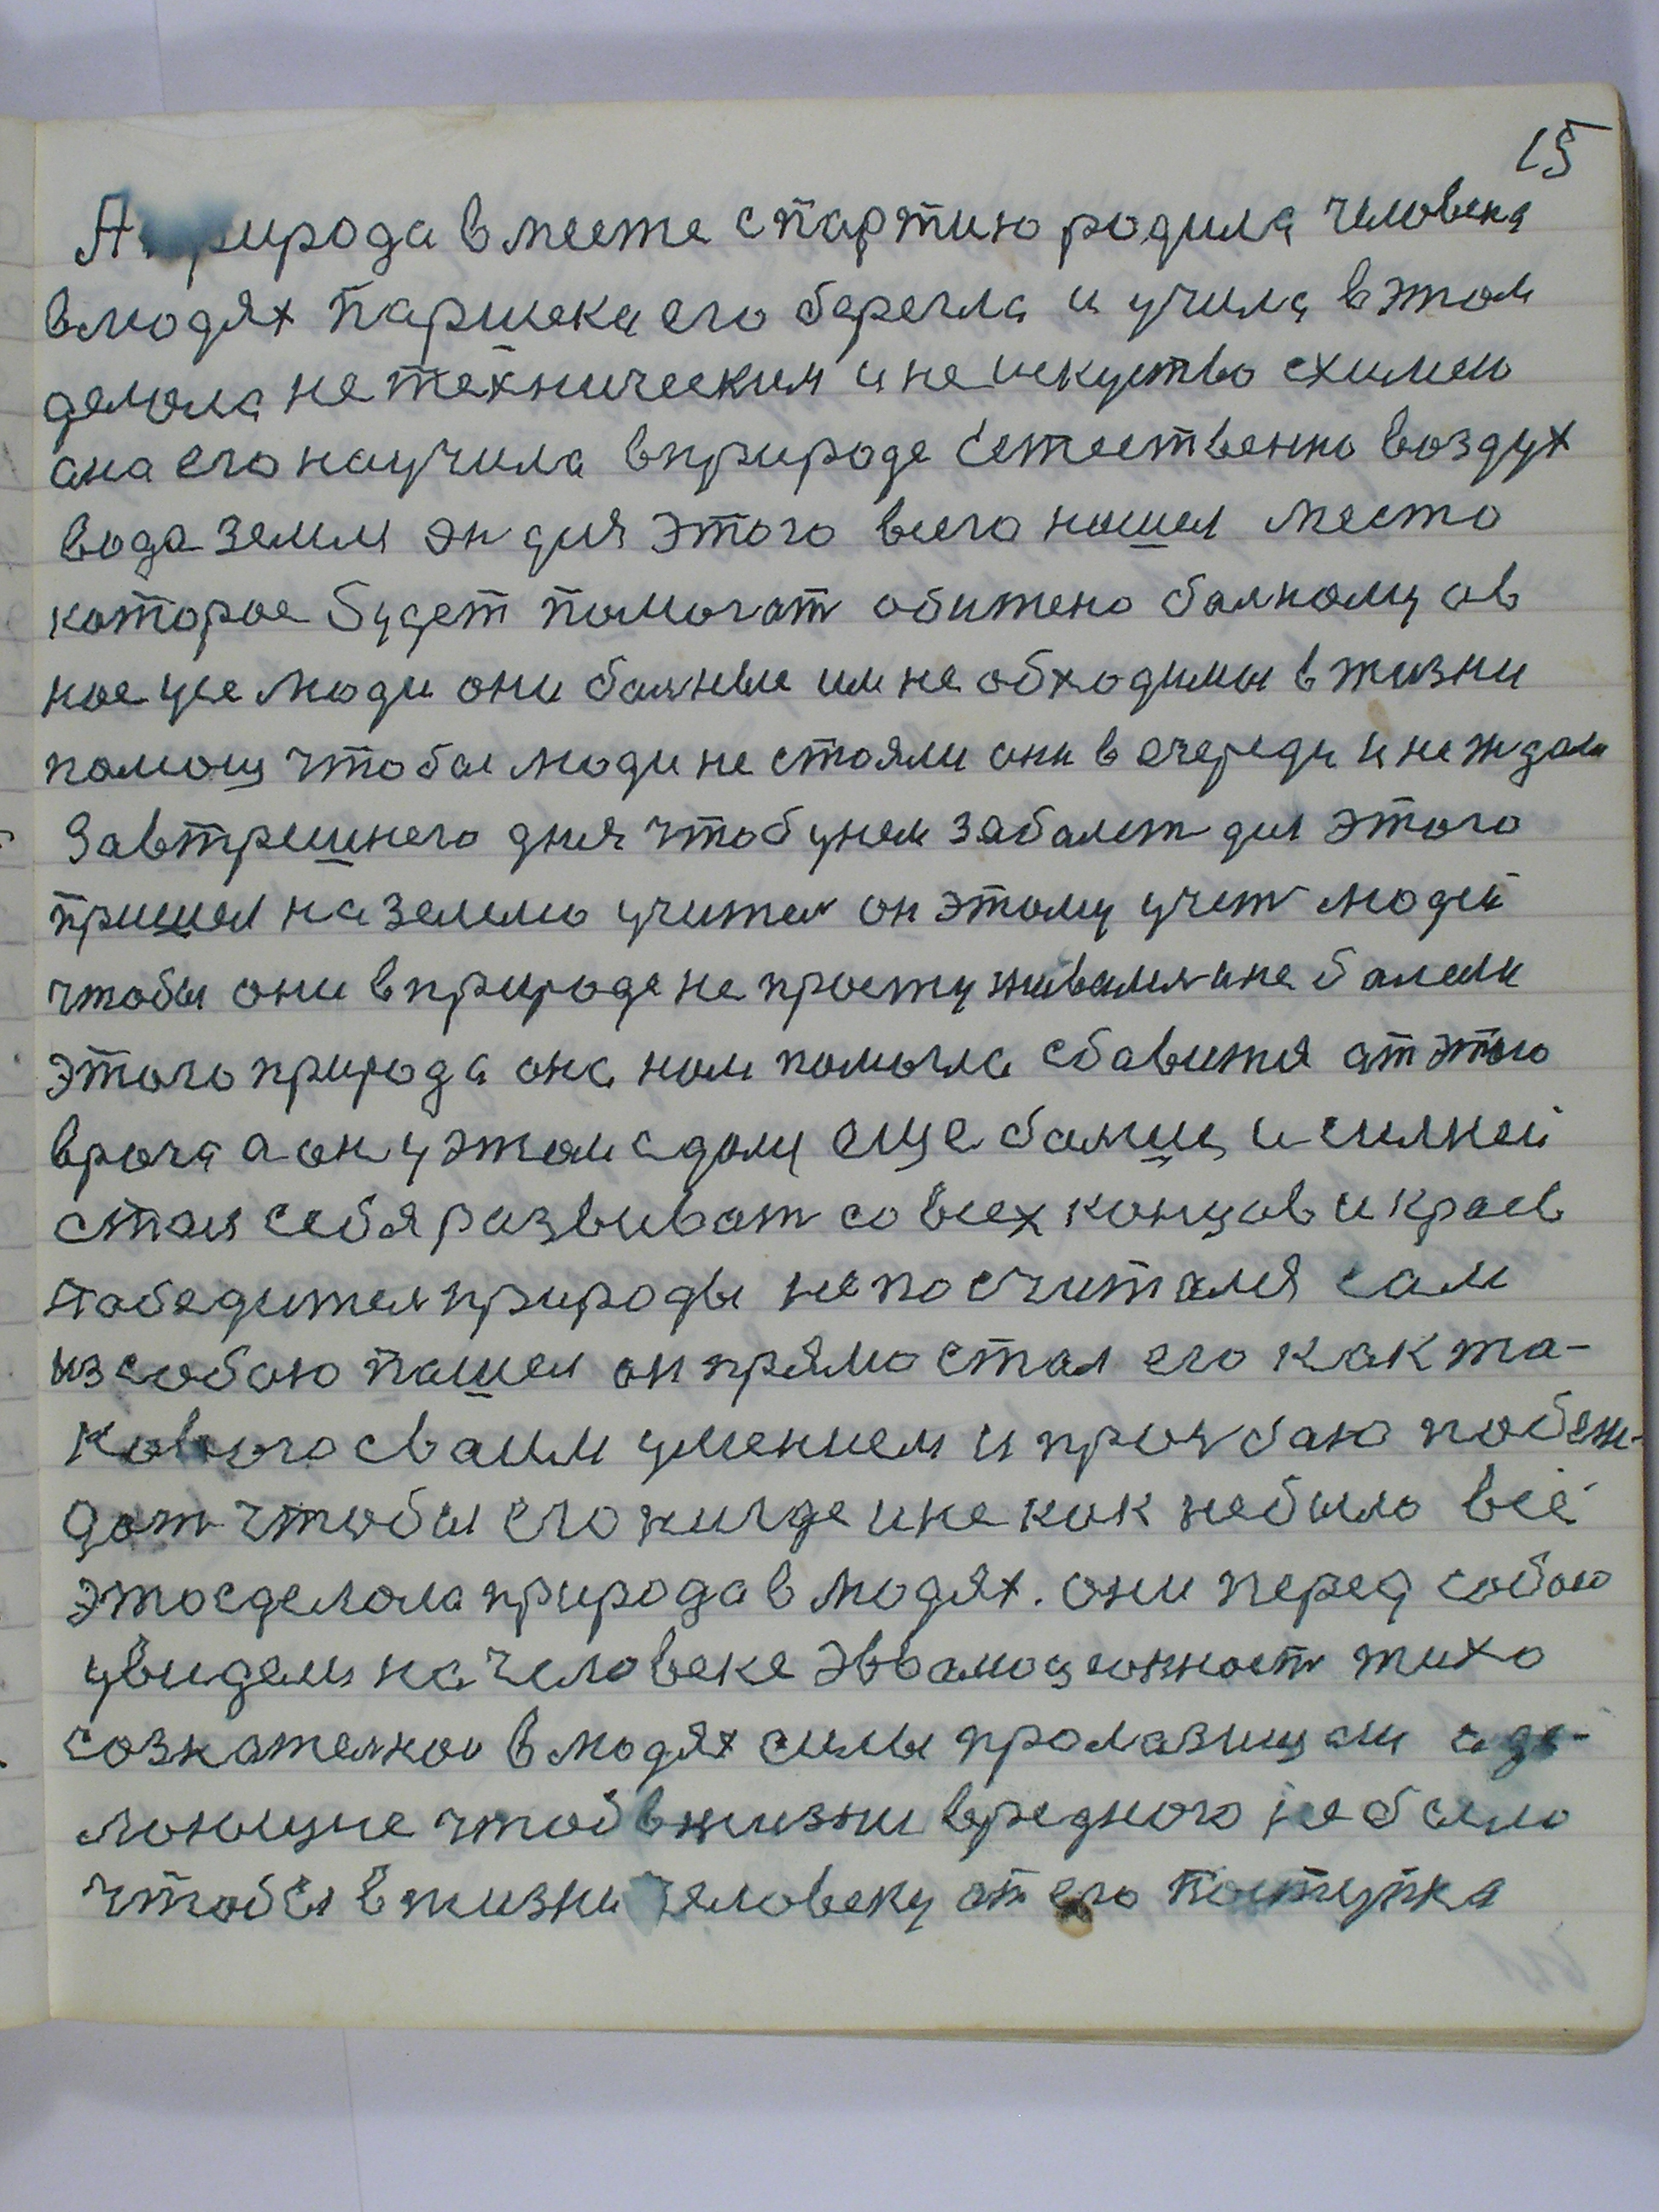 15
А природа вместе спартию родила человека
влюдях паршека его берегла и учила вэтом
делала нетехническим и неискуство схимею
она его научила вприроде естественно воздух
вода земля он для этого всего нашел место
которое будет помогат обижено балному ов
ное усе люди они балные им не обходимы в жизни
помощ чтобы люди не стояли они в очереди и не ждали
Завтрешнего дня чтоб унем забалет для этого
пришел на землю учител он этому учет людей
чтобы они вприроде не простуживалися и не балели
этого природа она нам помогла сбавится ат этого
врага а он у этом сдалу еще балшу и силней
стал себя развиват со всех концов и краев
победител природы не посчитался сам
из собою пашел он прямо стал его как та-
кового сваим умением и прозбаю побеж-
дат чтобы его нигде и не как небыло всё
это сделала природа в людях. они перед собою
увидели на человеке эвалюционност тихо
сознателной в людях силы пролазищаи сде-
лающие чтоб в жизни вредного не было
чтобы в жизни человеку от его поступка